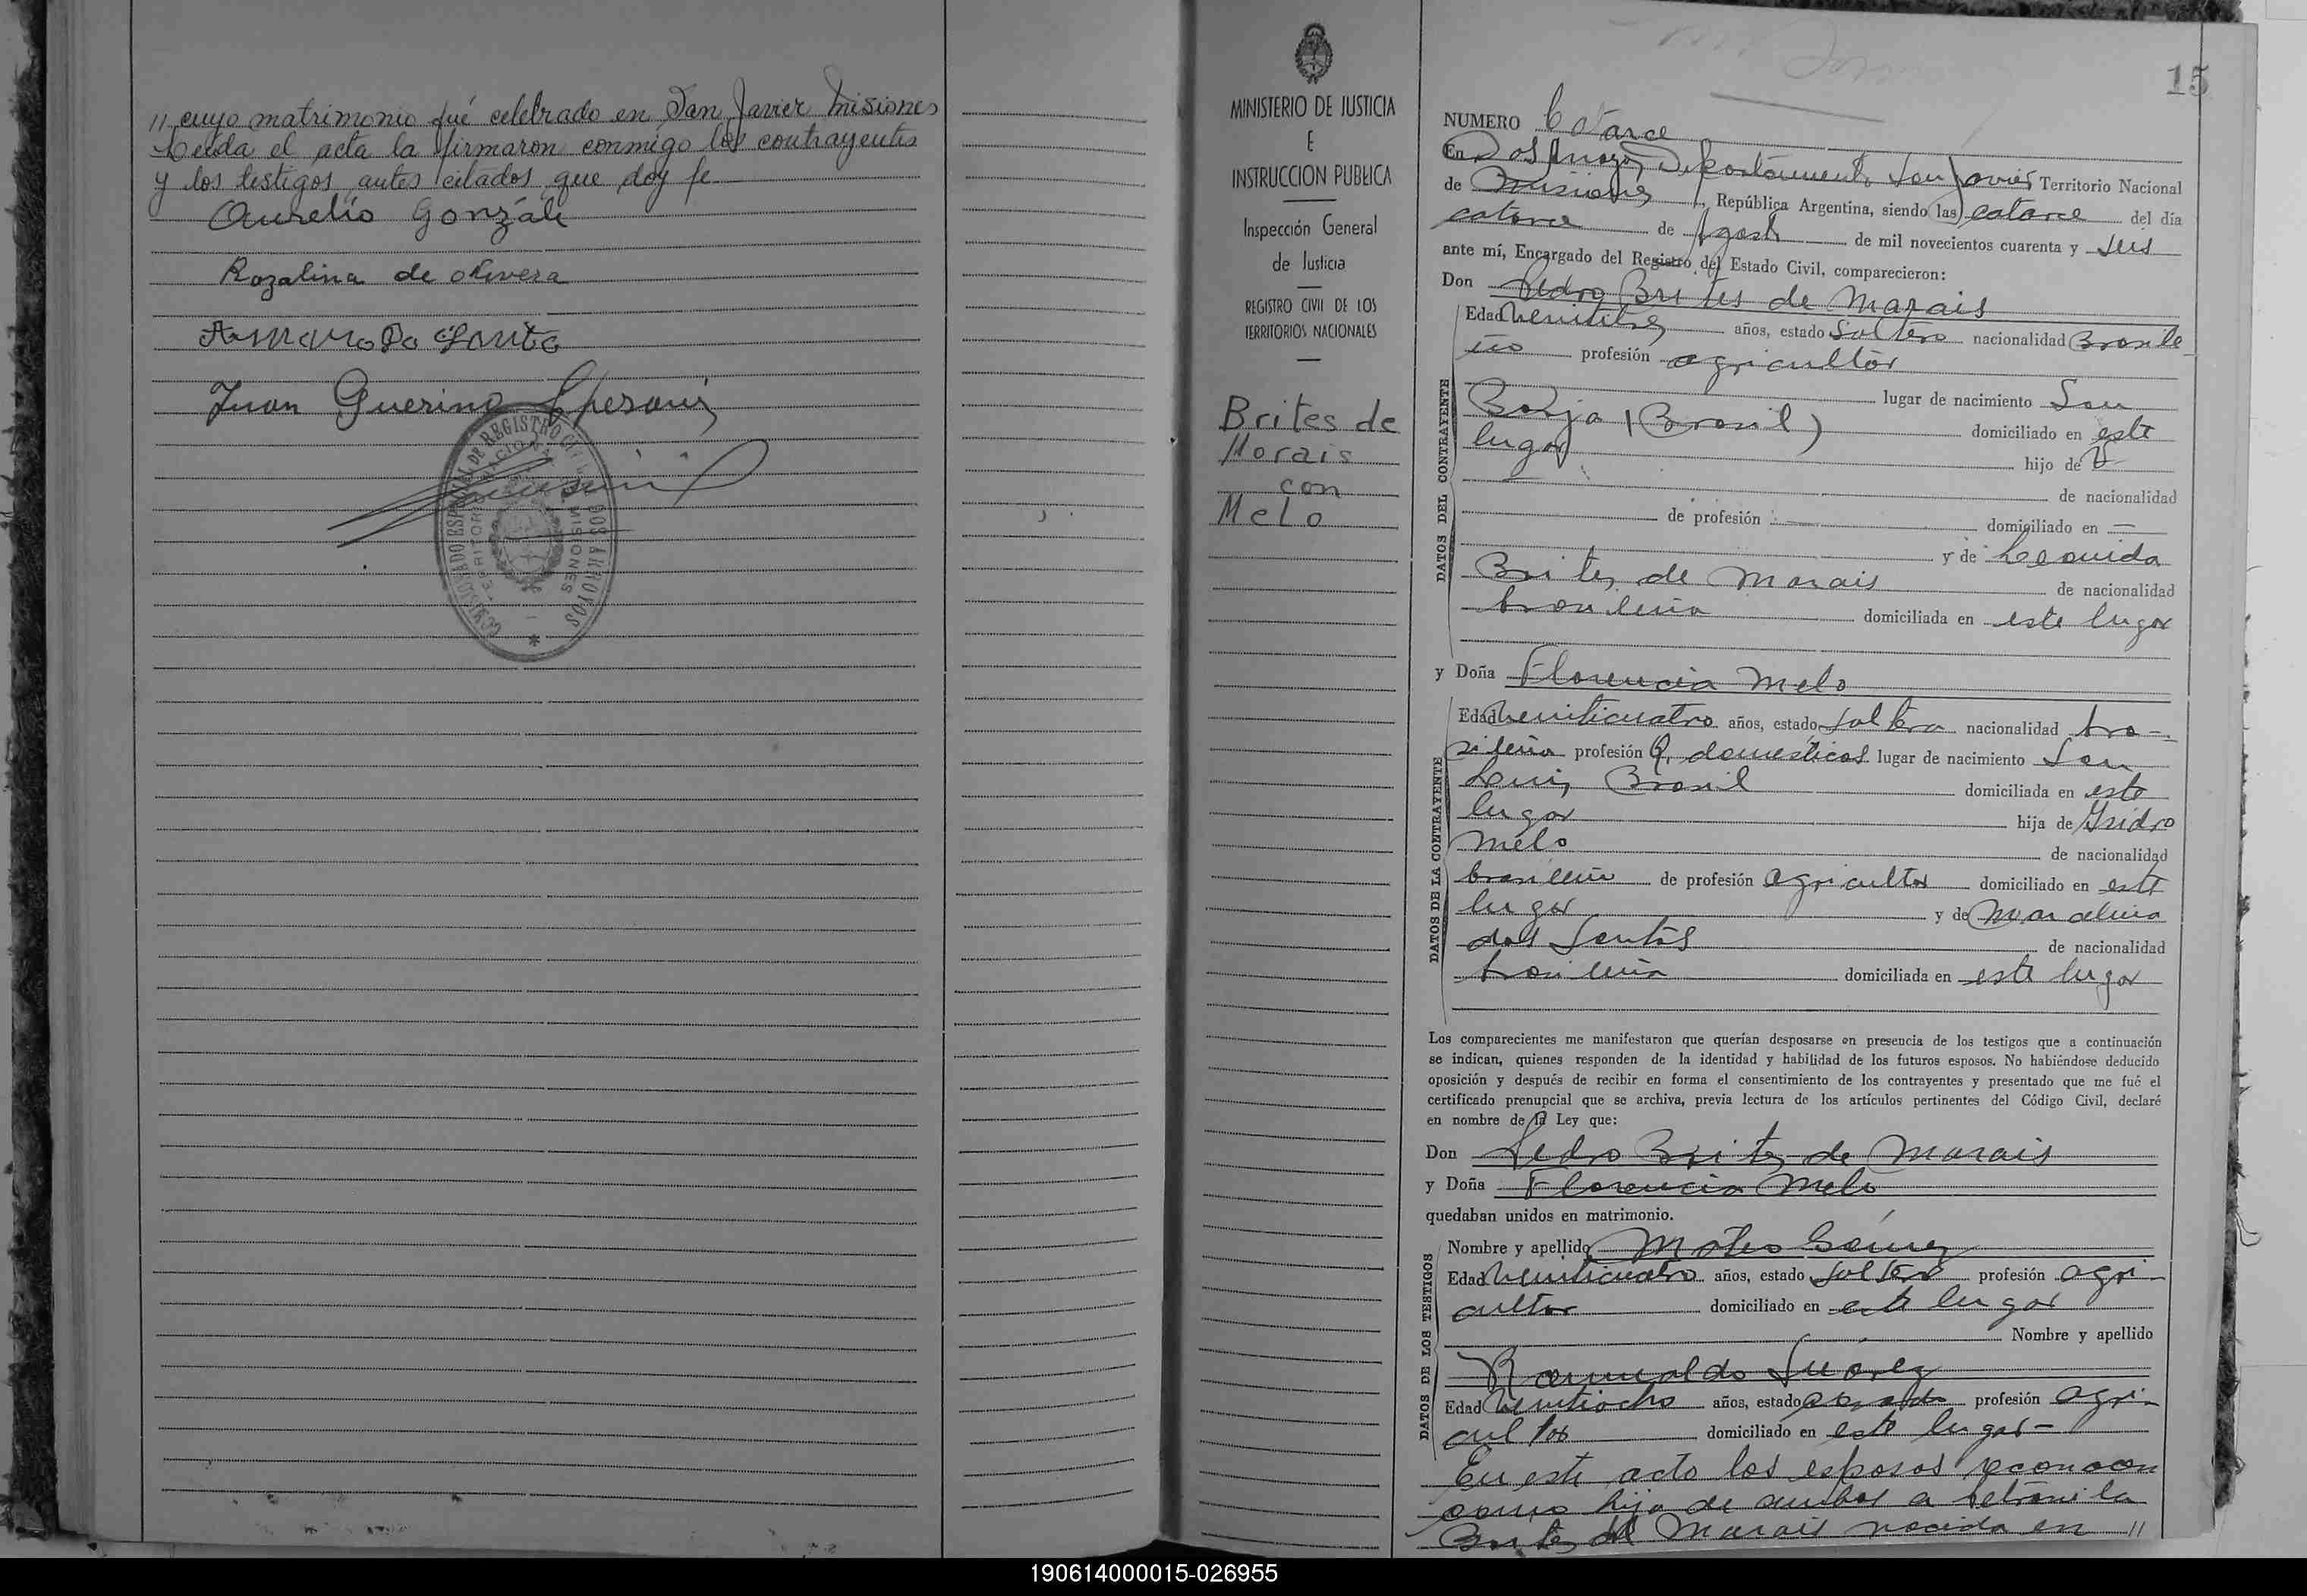 // cuyo matrimonio fué celebrado en San Javier Misiones
Leída el acta la firmaron conmigo los contrayentes
y los testigos antes citados que doy fe
Aurelio Gonzále
Rozalina de olivera
Juan Guerino
DOS ARROYOS
MISIONES
MINISTERIO DE JUSTICIA
E
INSTRUCCION PUBLICA
Inspección General
de Justicia
REGISTRO CIVIL DE LOS
TERRITORIOS NACIONALES
Brites de
Morais
con
Melo
15
NUMERO Catorce
En Dos Arroyos Departamento San Javier Territorio Nacional
de Misiones, República Argentina, siendo las catorce del día
catorce de Agosto de mil novecientos cuarenta y seis
ante mí, Encargado del Registro del Estado Civil, comparecieron:
Don Pedro Brites de Marais
DATOS DEL CONTRAYENTE
Edad veintitres años, estado Soltero nacionalidad Brasile
ño profesión agricultor
lugar de nacimiento San
Borja (Brasil) domiciliado en este
lugar hijo de
de nacionalidad
de profesión — domiciliado en —
y de Leonida
Brites de Marais de nacionalidad
brasileña domiciliada en este lugar
y Doña Florencia Melo
DATOS DE LA CONTRAYENTE
Edad veinticuatro años, estado soltera nacionalidad bra-
sileña profesión Q. domesticos lugar de nacimiento San
Luis Brasil domiciliada en este
lugar hija de Isidro
Melo de nacionalidad
brasileño de profesión agricultor domiciliado en este
lugar y de Marcelina
dos Santos de nacionalidad
brasileña domiciliada en este lugar
Los comparecientes me manifestaron que querían desposarse en presencia de los testigos que a continuación
se indican, quienes responden de la identidad y habilidad de los futuros esposos. No habiéndose deducido
oposición y después de recibir en forma el consentimiento de los contrayentes y presentado que me fué el
certificado prenupcial que se archiva, previa lectura de los artículos pertinentes del Código Civil, declaré
en nombre de la Ley que:
Don Pedro Brites de Marais
y Doña Florencia Melo
quedaban unidos en matrimonio.
DATOS DE LOS TESTIGOS
Nombre y apellido Mateo Gómez
Edad veinticuatro años, estado soltero profesión agri-
cultor domiciliado en este lugar
Nombre y apellido
Romualdo Suárez
Edad veintiocho años, estado casado profesión agri-
cultor domiciliado en este lugar-
En este acto los esposos reconocen
como hija de ambos a Petronila
Brites de Marais nacida en //
190614000015-026955